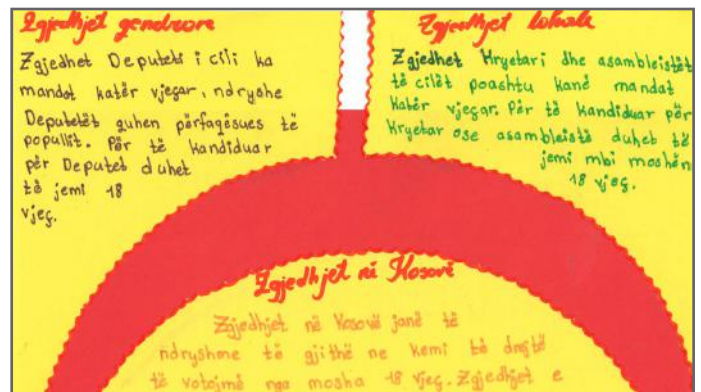 Zgjedhjet qendrore
Zgjedhet Deputeti i cili ka
mandat katër vjeçar, ndryshe
Deputetët quhen përfaqësues të
popullit. Për të kandiduar
për Deputet duhet
të jemi 18
vjeç.
Zgjedhjet lokale
Zgjedhet Kryetari dhe asambleistët
të cilët poashtu kanë mandat
katër vjeçar. Për të kandiduar për
Kryetar ose asambleistë duhet të
jemi mbi moshën
18 vjeç.
Zgjedhjet në Kosovë
Zgjedhjet në Kosovë janë të
ndryshme të gjithë ne kemi të drejtë
të votojmë nga mosha 18 vjeç. Zgjedhjet e